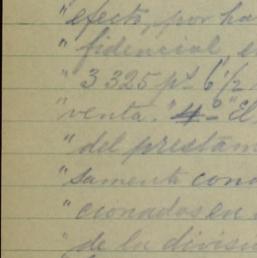 "efecto, por ha
"fidencial, e
"3325 ps 6 1/2
"venta." 4º "El
"del prestam
"samente cond
"cionados en
"de la divisi